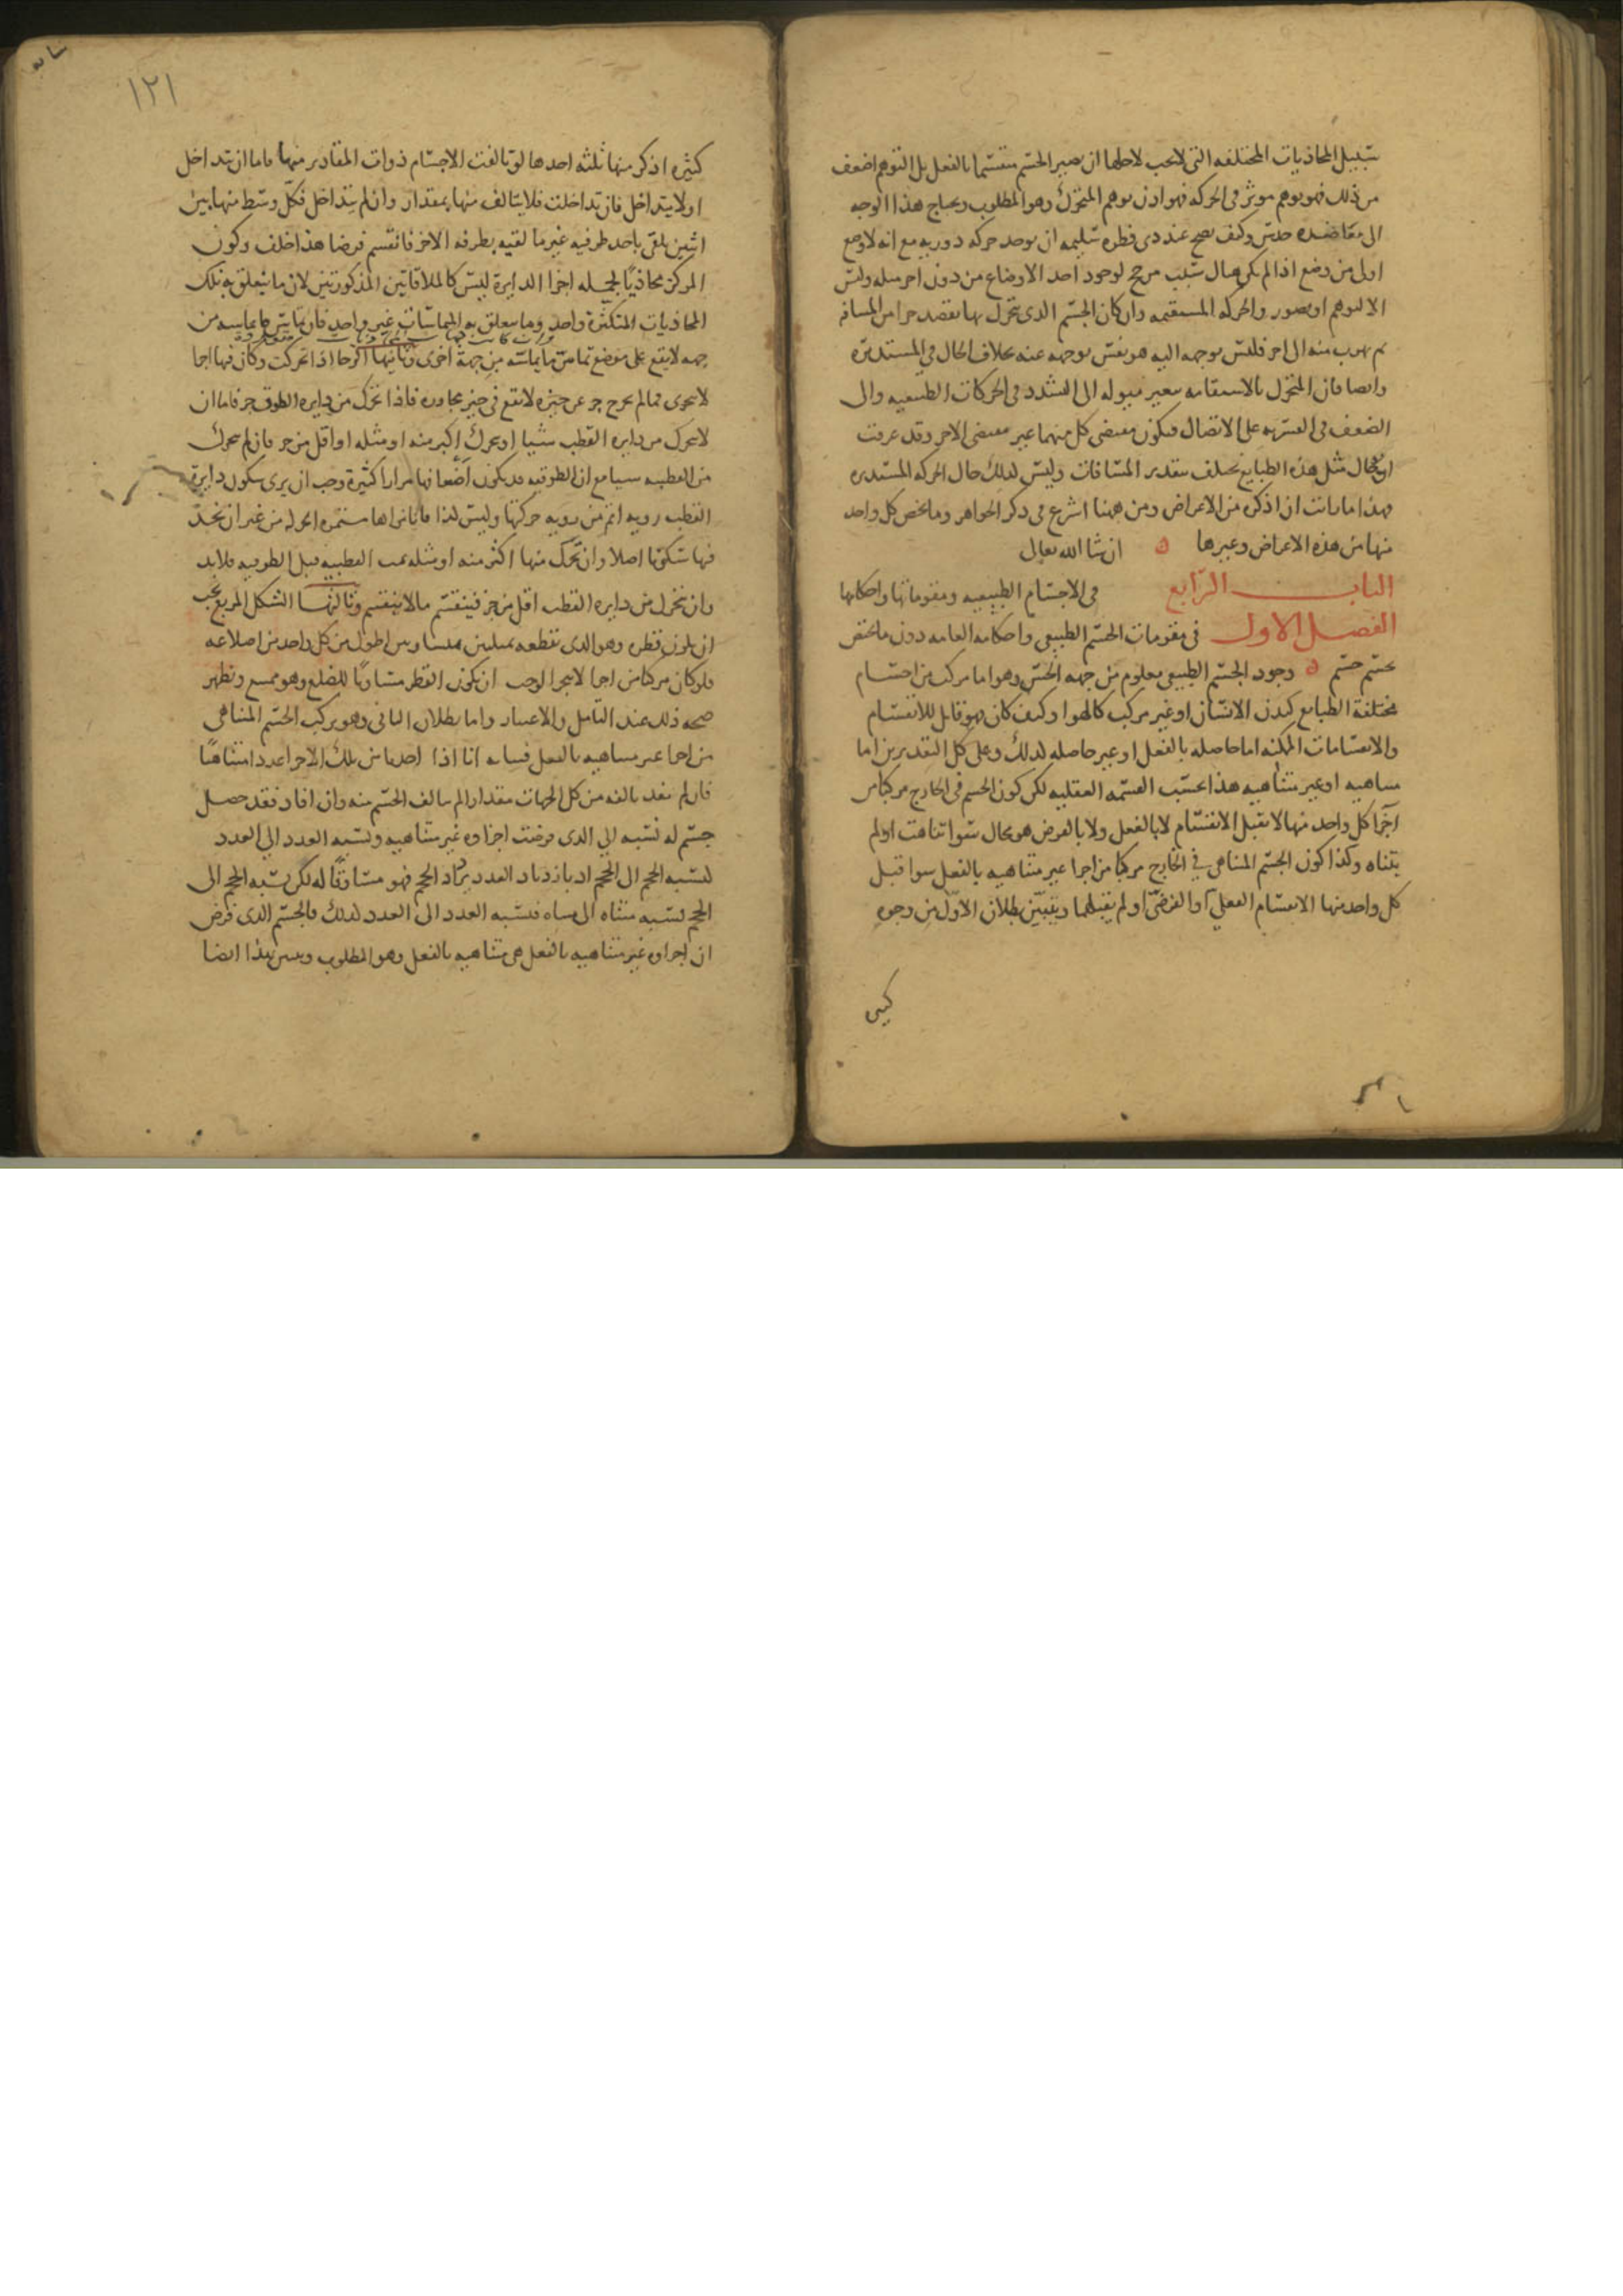 سبيل المحاذيات المختلفه التى لا يجب لاجلها ان يصير الجسم منقسما بالفعل بل التوهم اضعف
من ذلك فهو توهم موثر فى الحركه فهو اذن توهم المتحرك وهو المطلوب ويحتاج هذا الوجه
الى معاضده حدس وكيف يصح عند ذى فطره سليمه ان يوجد حركه دوريه مع انه لا وضع
اولى من وضع اذا لم يكن هناك سبب مرجح لوجود احد الاوضاع من دون اخر مثله وليس
الا لتوهم او تصور والحركه المستقيمه وان كان الجسم الذى يتحرك بها يقصد جزا من المسافه
ثم يهرب منه الى اخر فليس توجهه اليه هو نفس توجهه عنه بخلاف الحال فى المستديره
وايضا فان المتحرك بالاستقامه يتغير ميوله الى التشدد فى الحركات الطبيعيه والى
الضعف فى القسريه على الاتصال فيكون مقتضى كل منهما غير مقتضى الاخر وقد عرفت
ان حال مثل هذه الطبايع يختلف بتقدير المسافات وليس كذلك حال الحركه المستديره
فهذا ما رايت ان اذكره من الاعراض ومن ههنا اشرع فى ذكر الجواهر وما يخص كل واحد
منها من هذه الاعراض وغيرها ان شا الله تعالى
الباب الرابع فى الاجسام الطبيعيه ومقوماتها واحكامها
الفصل الاول فى مقومات الجسم الطبيعى واحكامه العامه دون ما يختص
بجسم جسم وجود الجسم الطبيعى معلوم من جهه الحس وهو اما مركب من اجسام
مختلفة الطبايع كبدن الانسان او غير مركب كالهوا وكيف كان فهو قابل للانقسام
والانقسامات الممكنه اما حاصله بالفعل او غير حاصله كذلك وعلى كل التقديرين اما
متناهيه او غير متناهيه هذا بحسب القسمه العقليه لكن كون الجسم فى الخارج مركبا من
اجزا كل واحد منها لا يقبل الانقسام لا بالفعل ولا بالفرض هو محال سوا تناهت او لم
يتناه وكذا كون الجسم المتناهى فى الخارج مركبا من اجزا غير متناهيه بالفعل سوا قبل
كل واحد منها الانقسام الفعلى او الفرضى او لم يقبلهما ويتبين بطلان الاول من وجوه
١٢١
كثيره اذكر منها ثلثه احدها لو تالفت الاجسام ذوات المقادير منها فاما ان تتداخل
او لا يتداخل فان تداخلت فلا يتالف منها بمقدار وان لم يتداخل فكل وسط منها بين
اثنين يلقى باحد طرفيه غير ما لقيه بطرفه الاخر فانقسم فرضا هذا خلف وكون
المركز محاذيا لجمله اجزا الدايرة ليس كالملاقاتين المذكورتين لان ما يتعلق به تلك
المحاذيات المتكثرة واحد وما يتعلق به المماسات غير واحد فان تماس ما يماسه من
جهه لا يقع على موضع تماس ما يماسه من جهة اخرى وثانيها ان الرحا اذا تحركت وكان فيها اجزا
لا تتجزى فما لم يخرج جز عن حيزه لا تقع فى حيز مجاوره فاذا تحرك من دايره الطوق جز فاما ان
لا يتحرك من دايره القطب شيا او يتحرك اكبر منه او مثله او اقل من جز فان لم يتحرك
من القطبيه شيا مع ان الطوقيه قد يكون اضعافها مرارا كثيرة وجب ان يرى سكون دايرة
القطب رويه اتم من رويه حركتها وليس كذا فانا نراها مستمره الحركه من غير ان نجد
فيها سكونا اصلا وان تحرك منها اكثر منه او مثله القطبيه قبل الطوقيه فلا بد
وان تتحرك من دايره القطب اقل من جز فينقسم ما لا ينقسم وثالثها الشكل المربع يجب
ان يكون قطره وهو الذى يقطعه بمثلثين متساويين اطول من كل واحد من اضلاعه
فلو كان مركبا من اجزا لا تتجزا لوجب ان يكون القطر مساويا للضلع وهو ممتنع ويظهر
صحه ذلك عند التامل والاعتبار واما بطلان الثانى وهو تركب الجسم المتناهى
من اجزا غير متناهيه بالفعل فبيانه انا اذا اخذنا من تلك الاجزا عددا متناهيا
فان لم يفد تالفه من كل الجهات مقدارا لم يتالف الجسم منه وان افاد فقد حصل
جسم له نسبه الى الذى فرضت اجزاوه غير متناهيه ونسبه العدد الى العدد
كنسبه الحجم الى الحجم اذ بازدياد العدد يزداد الحجم فهو مساوقا له لكن نسبه الحجم الى
الحجم نسبه متناه الى متناه فنسبه العدد الى العدد كذلك فالجسم الذى فرض
ان اجزاوه غير متناهيه بالفعل هى متناهيه بالفعل وهو المطلوب وتبين بهذا ايضا